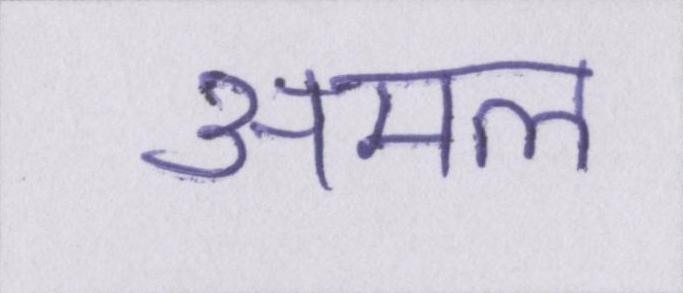 अमल